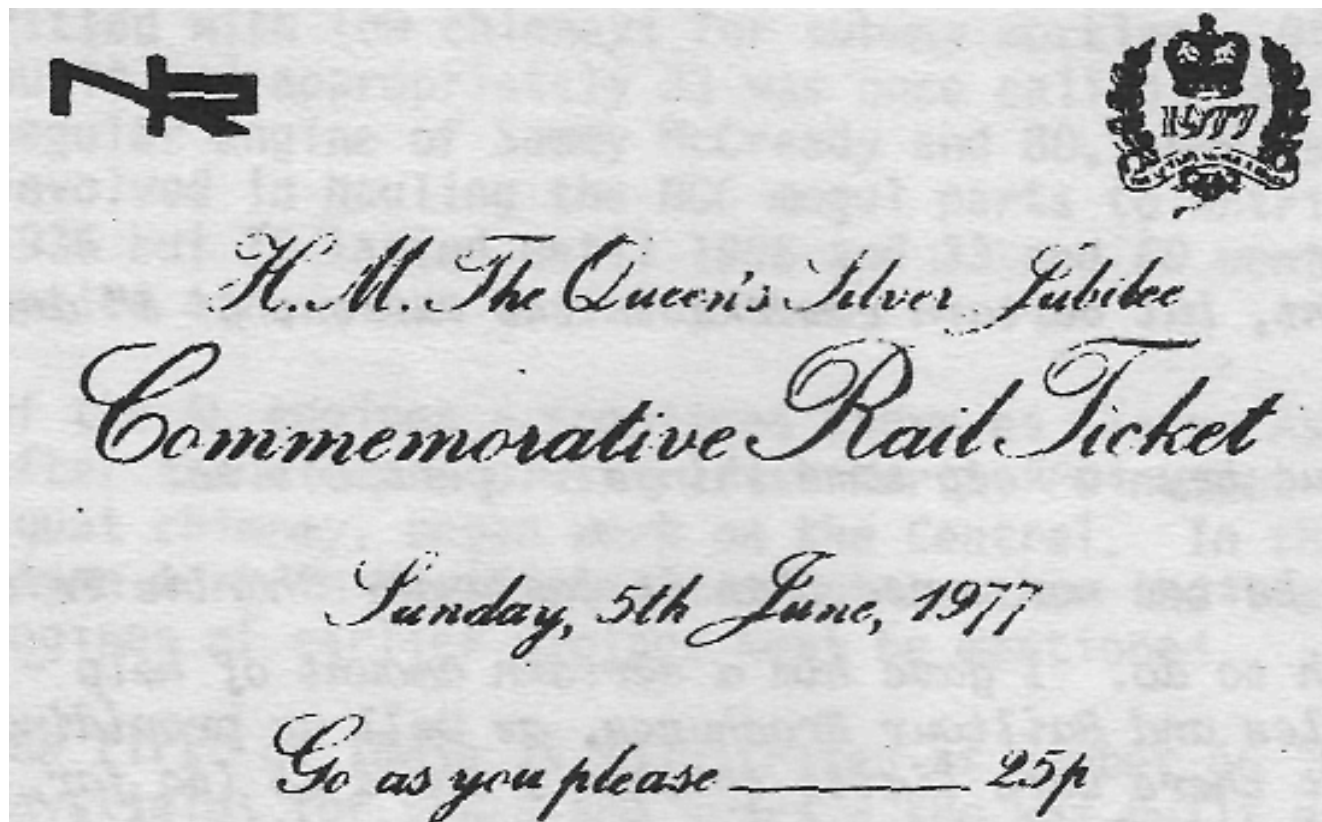 1977
H.M. The Queen's Silver Jubilee
Commemorative Rail Ticket
Sunday, 5th June, 1977
Go as you please ______ 25p